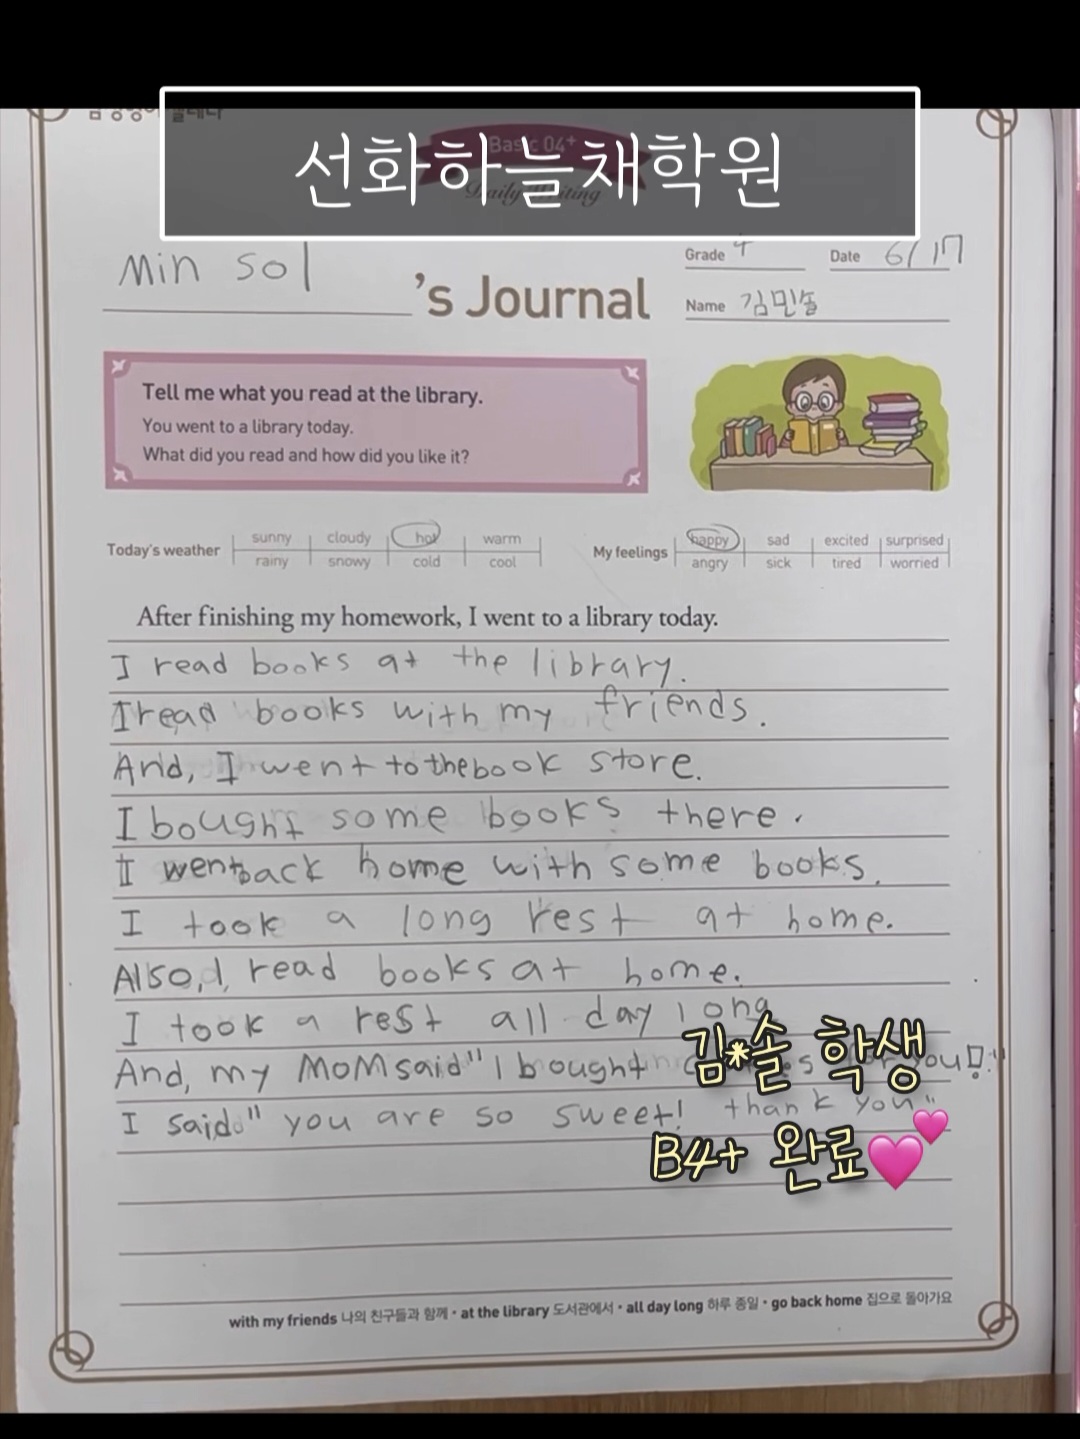 선화하늘채학원
Basic 04+
Daily Writing
Min sol 's Journal
Grade 4 Date 6/17
Name 김민솔
Tell me what you read at the library.
You went to a library today.
What did you read and how did you like it?
Today's weather sunny cloudy hot warm
rainy snowy cold cool
My feelings happy sad excited surprised
angry sick tired worried
After finishing my homework, I went to a library today.
I read books at the library.
I read books with my friends.
And, I went to the book store.
I bought some books there.
I went back home with some books.
I took a long rest at home.
Also, I, read books at home.
I took a rest all day long
And, my MoM said" I bought for you!"
I said" you are so sweet! thank you"
김*솔 학생
B4+ 완료💕
with my friends 나의 친구들과 함께 • at the library 도서관에서 • all day long 하루 종일 • go back home 집으로 돌아가요